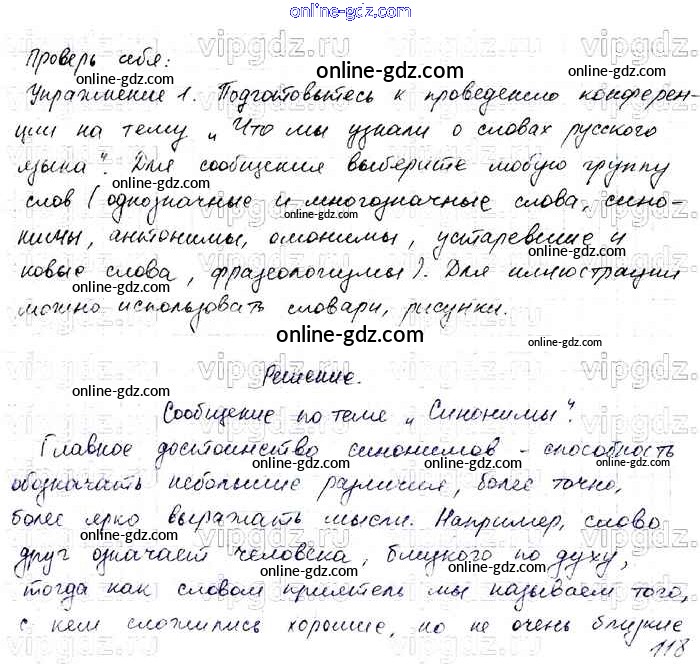 online-gdz.com
Проверь себя:
Упражнение 1. Подготовьтесь к проведению конферен-
ции на тему „Что мы узнали о словах русского
языка". Для сообщения выберите любую группу
слов (однозначные и многозначные слова, сино-
нимы, антонимы, омонимы, устаревшие и
новые слова, фразеологизмы). Для иллюстрации
можно использовать словари, рисунки.
online-gdz.com
Решение.
Сообщение по теме „Синонимы".
Главное достоинство синонимов - способность
обозначать небольшие различия, более точно,
более ярко выражать мысли. Например, слово
друг означает человека, близкого по духу,
тогда как словом приятель мы называем того,
с кем сложились хорошие, но не очень близкие
118